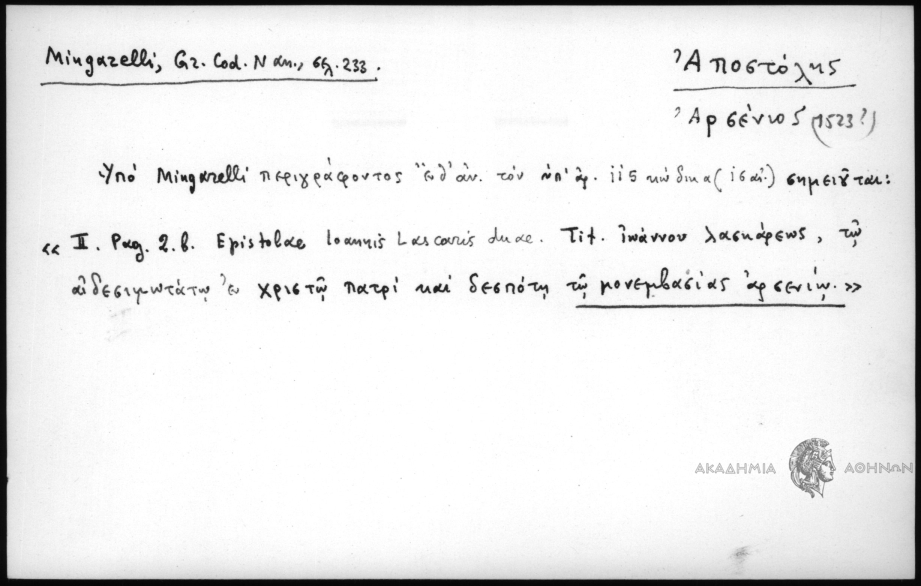 Mingarelli, Gr. Cod. Nan., σελ. 233.
Ἀποστόλης
Ἀρσένιος (1523?)
Ὑπό Mingarelli περιγράφοντος ἔνθ' ἀν. τόν ὑπ' ἀρ. κώδικα (ις αἰ.) σημειοῦται:
«II. Pag. 2. b. Epistolae Ioannis Lascaris duae. Tit. ἰωάννου λασκάρεως, τῷ
αἰδεσιμωτάτῳ ἐν χριστῷ πατρί καί δεσπότῃ τῷ μονεμβασίας ἀρσενίῳ.»
ΑΚΑΔΗΜΙΑ ΑΘΗΝΩΝ